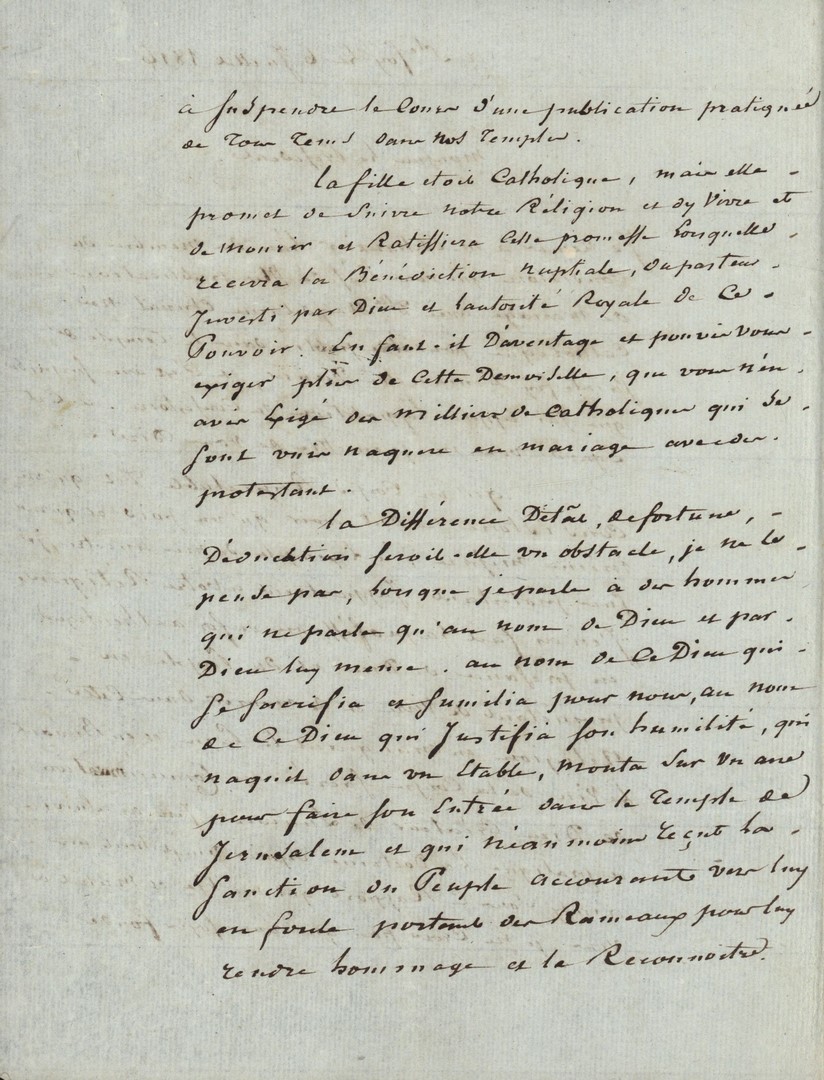 à suspendre le Cours d'une publication pratiquée
de Tous Tems dans nos Temples.
la fille etoit Catholique, mais elle
promet de suivre notre Réligion et dy Vivre et
de Mourir et Ratiffiera Cette promesse Lorsquelle
recevra la Bénédiction nuptiale, du pasteur
Jnvesti par Dieu et lautorité Royale de Ce
Pouvoir. En faut-il D'aventage et pouvés vous
exiger plus de Cette Demoiselle, que vous n'en
avés Exigé des Milliers de Catholiques qui se
sont unis naguere en mariage avec des
protestans.
la Différence Détat, de fortune,
Déducation seroit-elle un obstacle, je ne le
pense pas, Lorsque je parle à des hommes
qui ne parle qu'au nom de Dieu et par
Dieu luy meme. au nom de Ce Dieu qui
se sacrifia et sumilia pour nous, au nom
de Ce Dieu qui Justifia son humilité, qui
naquit dans un Etable, Monta Sur Un ane
pour faire son Entrée dans le Temple de
Jerusalem et qui Néanmoins reçut La
Sanction du Peuple accourant vers luy
en foule portant des Rameaux pour luy
rendre hommage et le Reconnoitre.